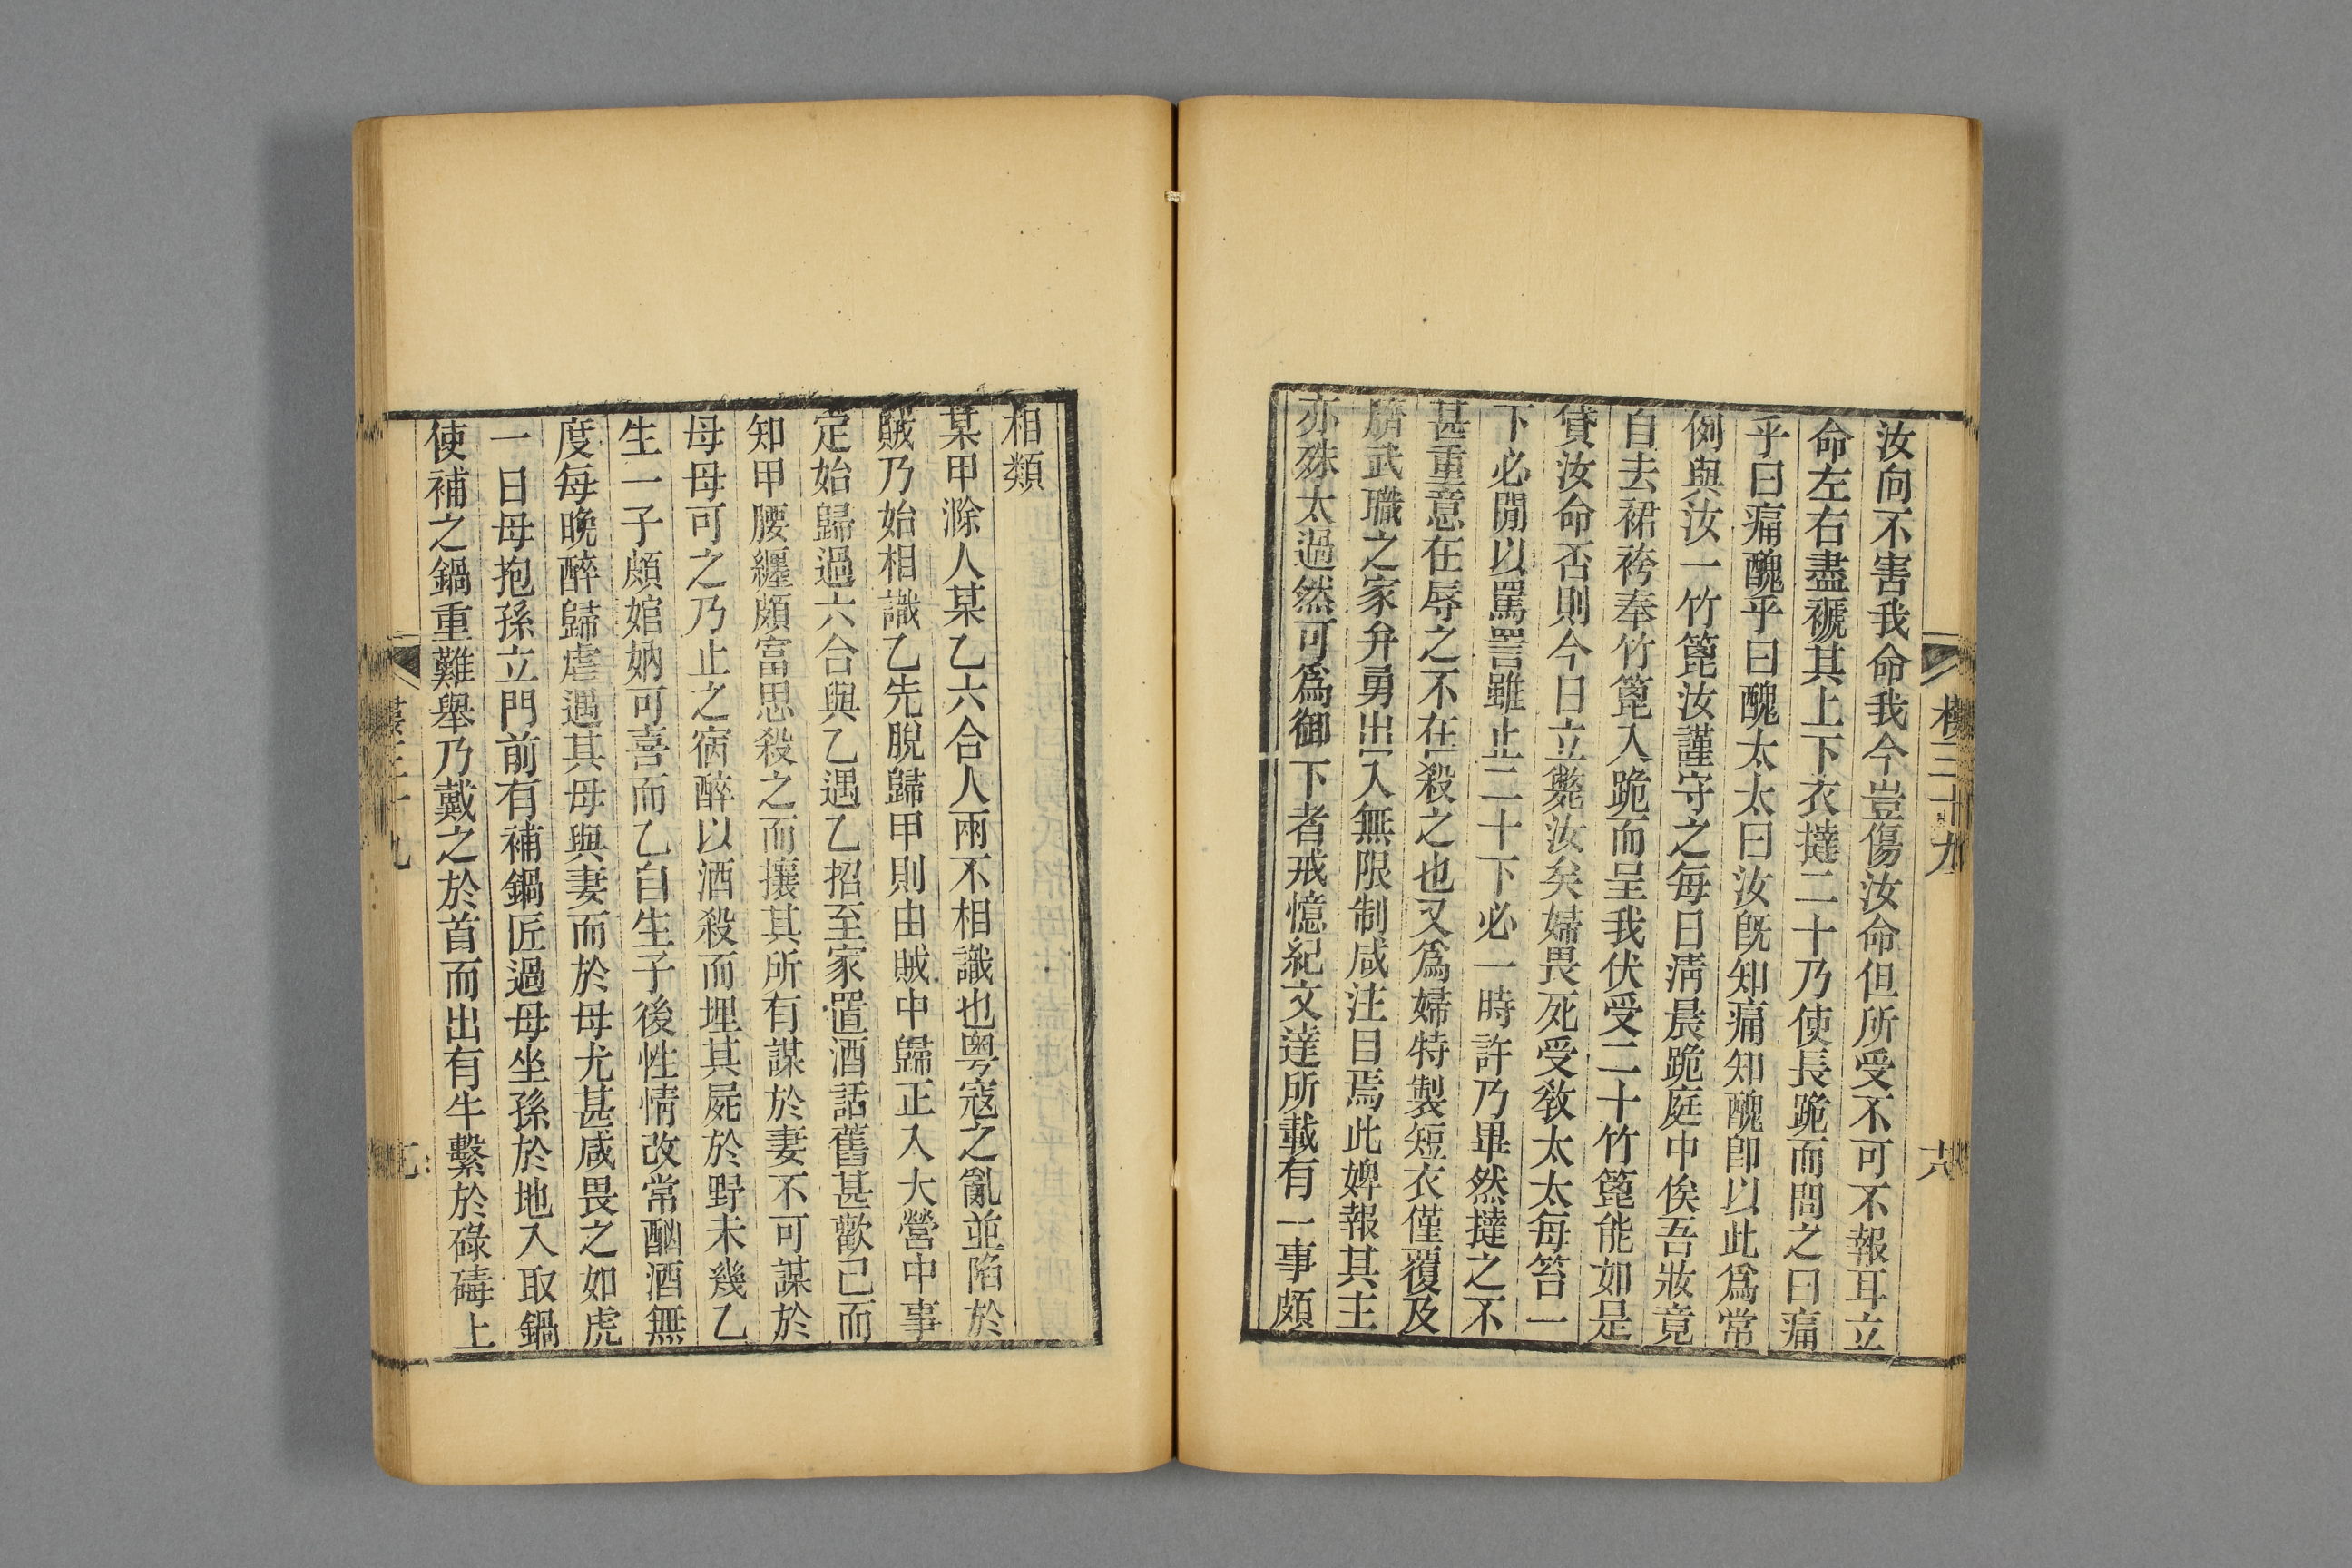 汝向不害我命我今豈傷汝命但所受不可不報耳立
命左右盡褫其上下衣撻二十乃使長跪而問之曰痛
乎曰痛醜乎曰醜太太曰汝既知痛知醜卽以此爲常
例與汝一竹篦汝謹守之每日清晨跪庭中俟吾妝竟
自去裙袴奉竹篦入跪而呈我伏受二十竹篦能如是
貸汝命否則今日立斃汝矣婦畏死受敎太太每笞一
下必閒以罵詈雖止二十下必一時許乃畢然撻之不
甚重意在辱之不在殺之也又爲婦特製短衣僅覆及
臍武職之家弁勇出入無限制咸注目焉此婢報其主
亦殊太過然可爲御下者戒憶紀文達所載有一事頗
樓三十九
六
相類
某甲滁人某乙六合人兩不相識也粵寇之亂並陷於
賊乃始相識乙先脫歸甲則由賊中歸正入大營中事
定始歸過六合與乙遇乙招至家置酒話舊甚歡已而
知甲腰纏頗富思殺之而攘其所有謀於妻不可謀於
母母可之乃止之宿醉以酒殺而埋其屍於野未幾乙
生一子頗婠妠可喜而乙自生子後性情改常酗酒無
度每晚醉歸虐遇其母與妻而於母尤甚咸畏之如虎
一日母抱孫立門前有補鍋匠過母坐孫於地入取鍋
使補之鍋重難舉乃戴之於首而出有牛繫於碌碡上